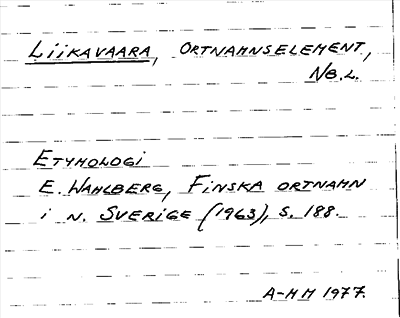 LIIKAVAARA, ORTNAMNSELEMENT,
NB.L.
ETYMOLOGI
E. WAHLBERG, FINSKA ORTNAMN
I N. SVERIGE (1963), S. 188.
A-M M 1977.